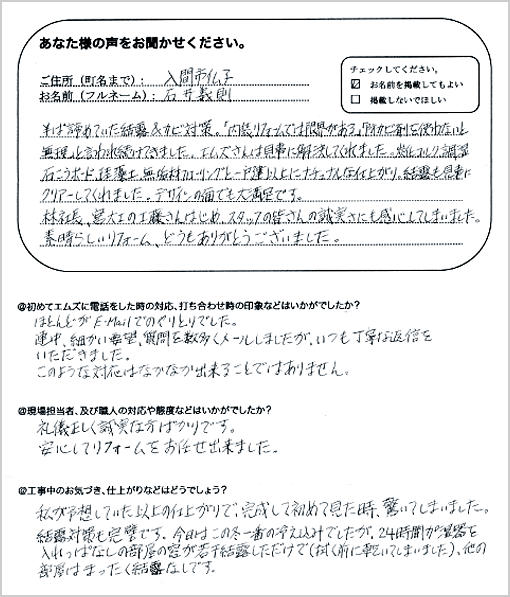 あなた様の声をお聞かせください。
ご住所（町名まで）： 入間市仏子
お名前（フルネーム）： 石井義則
チェックしてください。
☑ お名前を掲載してもよい
□ 掲載しないでほしい
半ば諦めていた結露&カビ対策。「内装リフォームでは限界がある。」「防カビ剤を使わないと
無理」と言われ続けてきました。エムズさんは見事に解決してくれました。炭化コルク、調湿
石こうボード、珪藻土、無垢材フローリングと一戸建以上にナチュラルな仕上がり、結露も見事に
クリアーしてくれました。デザインの面でも大満足です。
林社長、大工の工藤さんはじめ、スタッフの皆さんの誠実さにも感心してしまいました。
素晴らしいリフォーム、どうもありがとうございました。
@初めてエムズに電話をした時の対応、打ち合わせ時の印象などはいかがでしたか？
ほとんどがE-Mailでのやりとりでした。
連日、細かい要望、質問を数多くメールしましたが、いつも丁寧な返信を
いただきました。
このような対応はなかなか出来ることではありません。
@現場担当者、及び職人の対応や態度などはいかがでしたか？
礼儀正しく誠実な方ばかりです。
安心してリフォームをお任せ出来ました。
@工事中のお気づき、仕上がりなどはどうでしょう？
私が予想していた以上の仕上がりで、完成して初めて見た時、驚いてしまいました。
結露対策も完璧です。今日はこの冬一番の冷え込みでしたが、24時間加湿器を
入れっぱなしの部屋の窓が若干結露しただけで（拭く前に乾いてしまいました）、他の
部屋はまったく結露なしです。